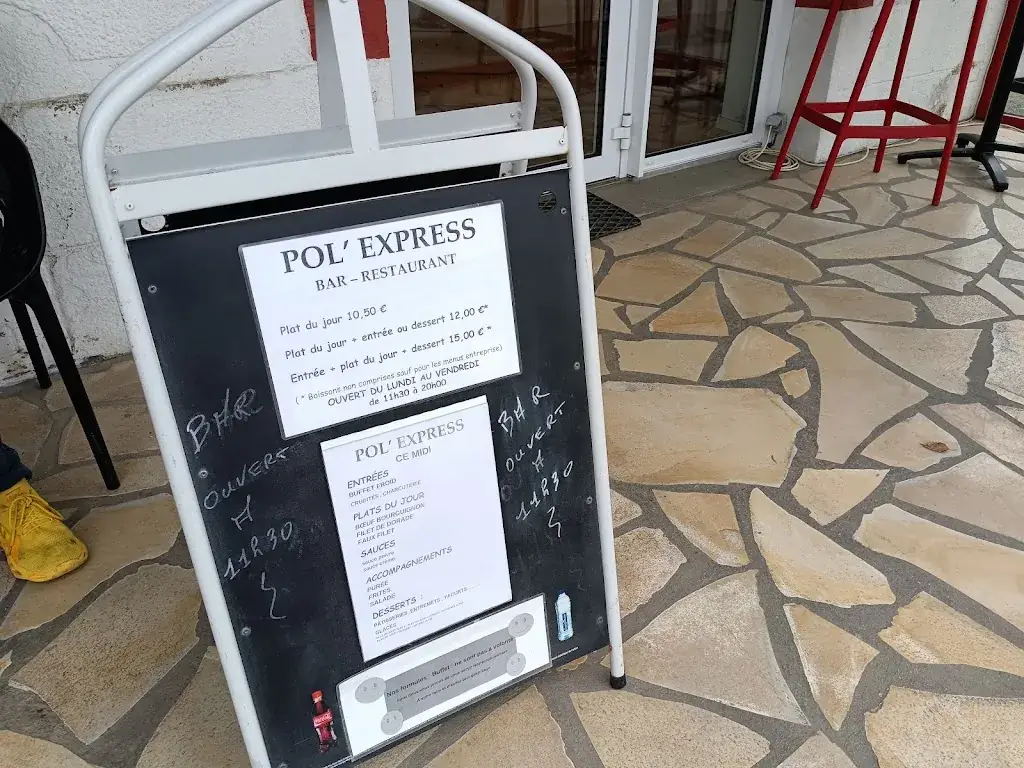 POL' EXPRESS
BAR – RESTAURANT
Plat du jour 10,50 €
Plat du jour + entrée ou dessert 12,00 €*
Entrée + plat du jour + dessert 15,00 € *
( * Boissons non comprises sauf pour les menus entreprise)
OUVERT DU LUNDI AU VENDREDI
de 11h30 à 20h00
BAR
OUVERT
A
11h30
POL' EXPRESS
CE MIDI
ENTRÉES
BUFFET FROID
CRUDITÉS, CHARCUTERIE
PLATS DU JOUR
BŒUF BOURGUIGNON
FILET DE DORADE
FAUX FILET
SAUCES
ACCOMPAGNEMENTS
PURÉE
FRITES
SALADE
DESSERTS :
PÂTISSERIES, ENTREMETS, YAOURTS...
GLACES
BAR
OUVERT
A
11h30
Nos formules : Buffet : ne sont pas à volonté